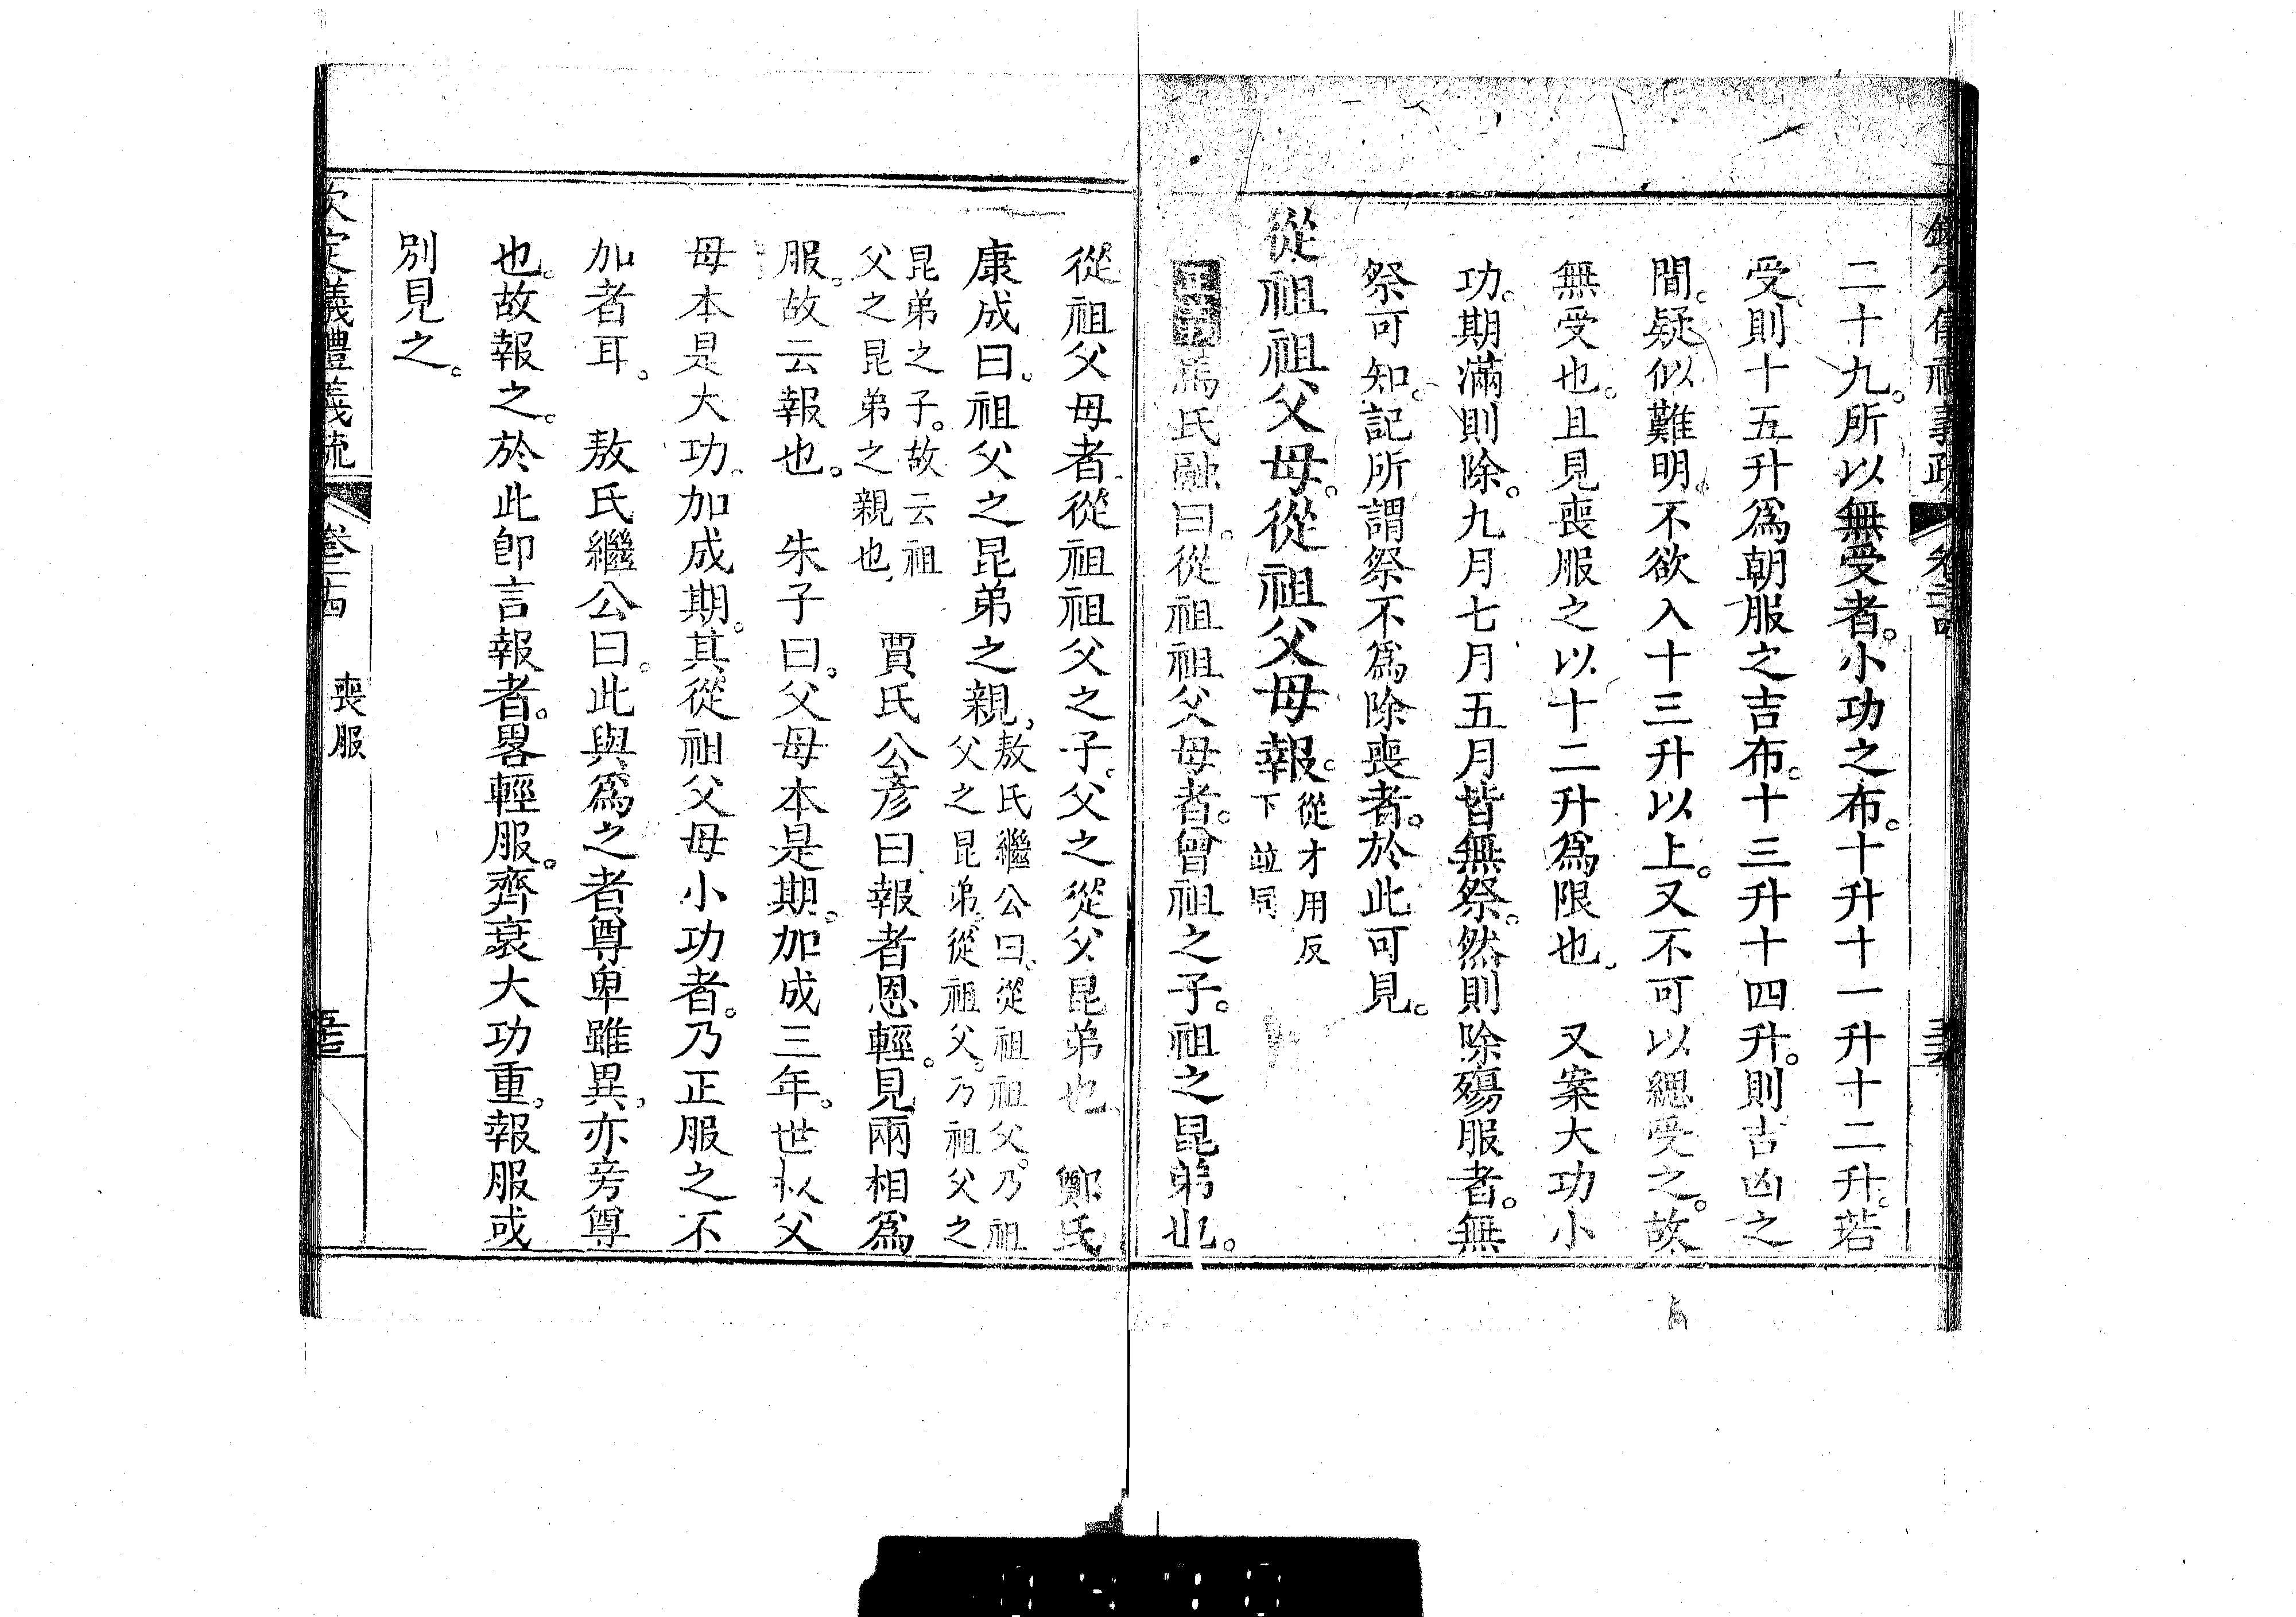 二十九。所以無受者。小功之布。十升十一升十二升。若
受。則十五升爲朝服之吉布。十三升十四升。則吉凶之
間。疑似難明。不欲入十三升以上。又不可以緦受之。故
無受也。且見喪服之以十二升爲限也。 又案大功小
功。期滿則除。九月七月五月皆無祭。然則除殤服者。無
祭可知。記所謂祭不爲除喪者。於此可見。
從祖祖父母。從祖父母報。
從才用反
下竝同
馬氏融曰。從祖祖父母者。曾祖之子。祖之昆弟也。
從祖父母者。從祖祖父之子。父之從父昆弟也。 鄭氏
康成曰。祖父之昆弟之親。
敖氏繼公曰。從祖祖父。乃祖
父之昆弟。從祖父。乃祖父之
昆弟之子。故云祖
父之昆弟之親也。
賈氏公彥曰。報者恩輕。見兩相爲
服。故云報也。 朱子曰。父母本是期。加成三年。世叔父
母本是大功。加成期。其從祖父母小功者。乃正服之不
加者耳。 敖氏繼公曰。此與爲之者尊卑雖異。亦旁尊
也。故報之。於此卽言報者。畧輕服。齊衰大功重。報服或
別見之。
欽定儀禮義疏 卷二十四 喪服